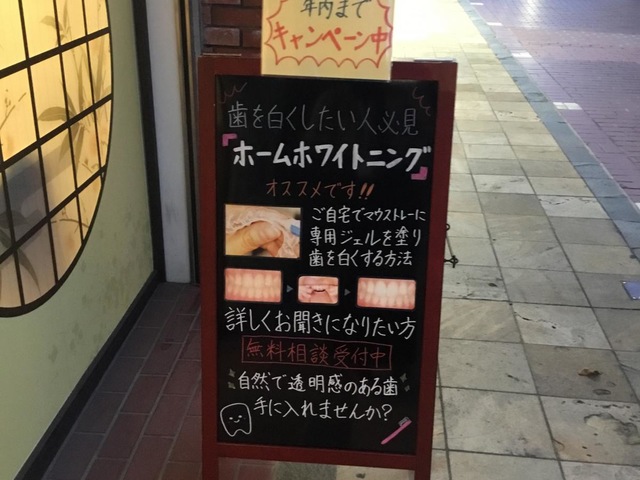 年内まで
キャンペーン中
歯を白くしたい人必見
「ホームホワイトニング」
オススメです!!
ご自宅でマウストレーに
専用ジェルを塗り
歯を白くする方法
詳しくお聞きになりたい方
無料相談受付中
自然で透明感のある歯
手に入れませんか?